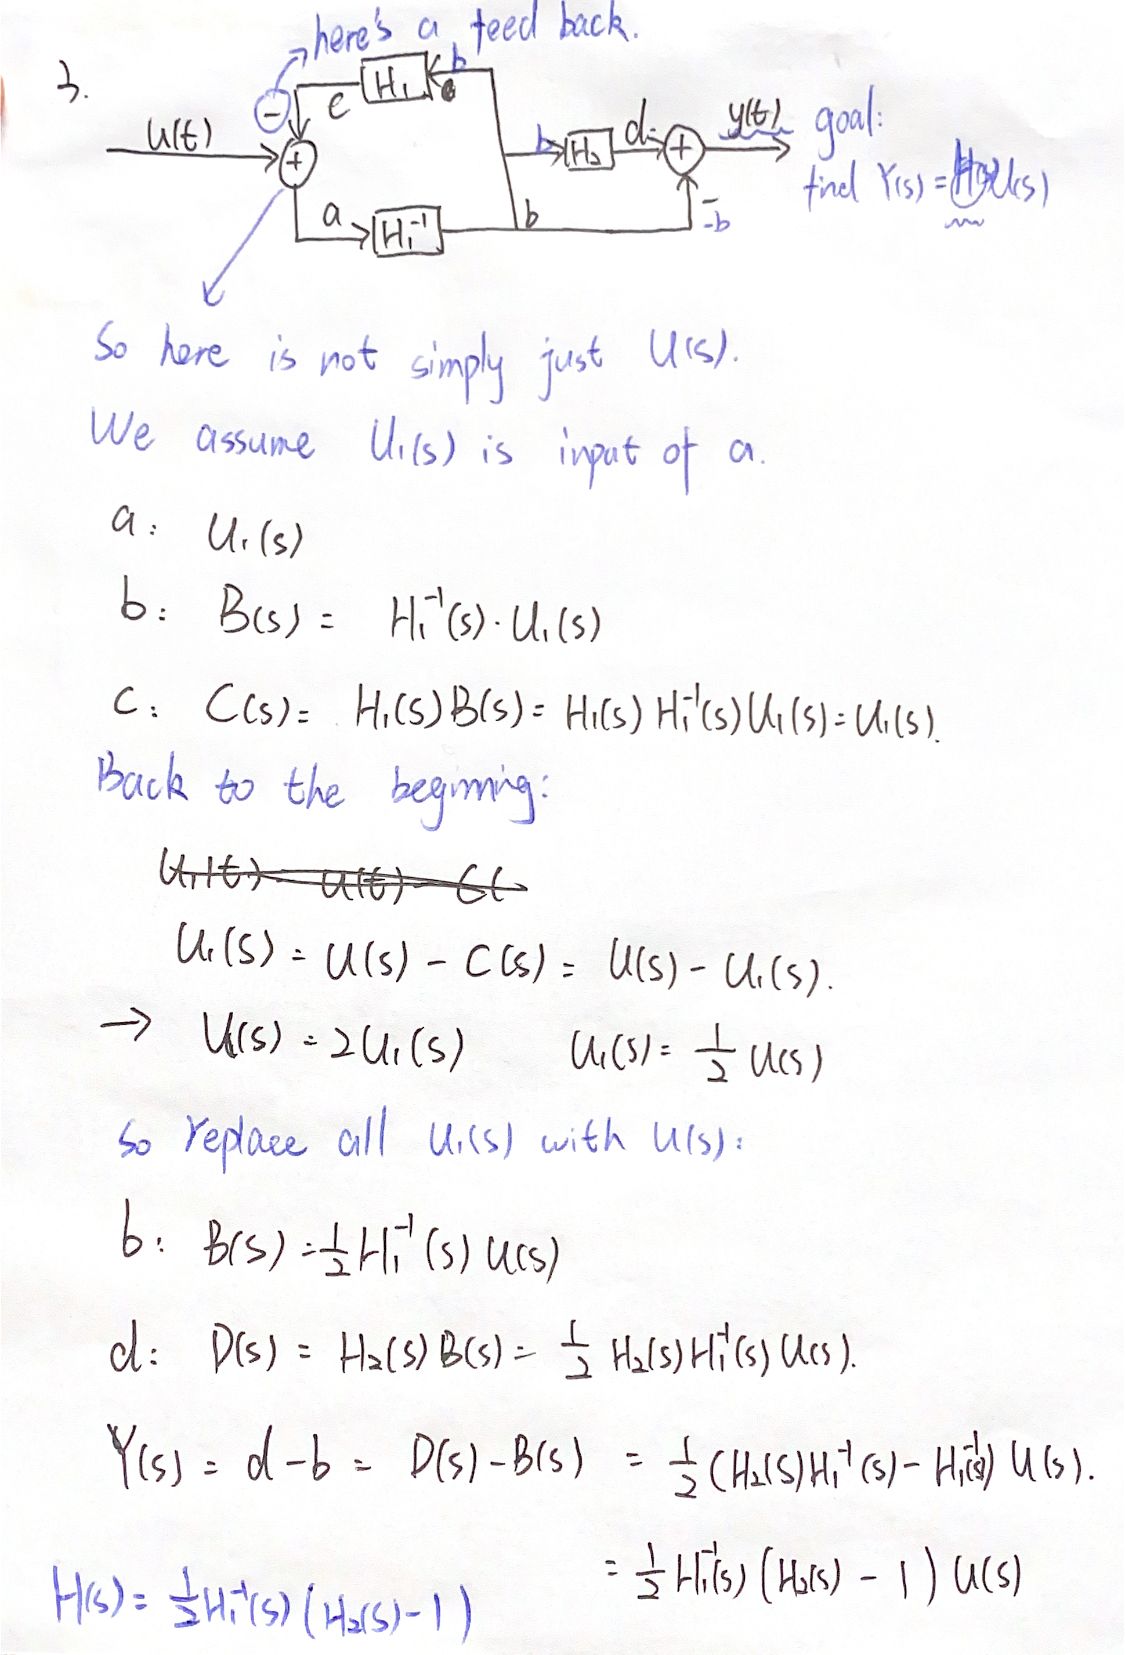 here's a feed back.
3.
H₁ b
−
c
u(t)
b H₂ d y(t) goal:
find Y(s) = H(s)U(s)
+
+
a H₁⁻¹ b −b
So here is not simply just U(s).
We assume U₁(s) is input of a.
a: U₁(s)
b: B(s) = H₁⁻¹(s)·U₁(s)
c: C(s) = H₁(s)B(s) = H₁(s) H₁⁻¹(s) U₁(s) = U₁(s).
Back to the beginning:
U₁(s) = U(s) − C(s) = U(s) − U₁(s).
→ U(s) = 2U₁(s) U₁(s) = 1/2 U(s)
So replace all U₁(s) with U(s):
b: B(s) = 1/2 H₁⁻¹(s) U(s)
d: D(s) = H₂(s) B(s) = 1/2 H₂(s) H₁⁻¹(s) U(s).
Y(s) = d − b = D(s) − B(s) = 1/2 (H₂(s)H₁⁻¹(s) − H₁⁻¹(s)) U(s).
= 1/2 H₁⁻¹(s) (H₂(s) − 1) U(s)
H(s) = 1/2 H₁⁻¹(s) (H₂(s) − 1)